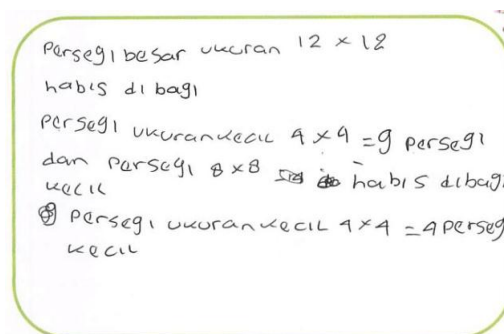 Persegi besar ukuran 12 x 12
habis di bagi
persegi ukuran kecil 4 x 4 = 9 persegi
dan persegi 8 x 8 habis dibagi
kecil
persegi ukuran kecil 4 x 4 = 4 perseg
kecil